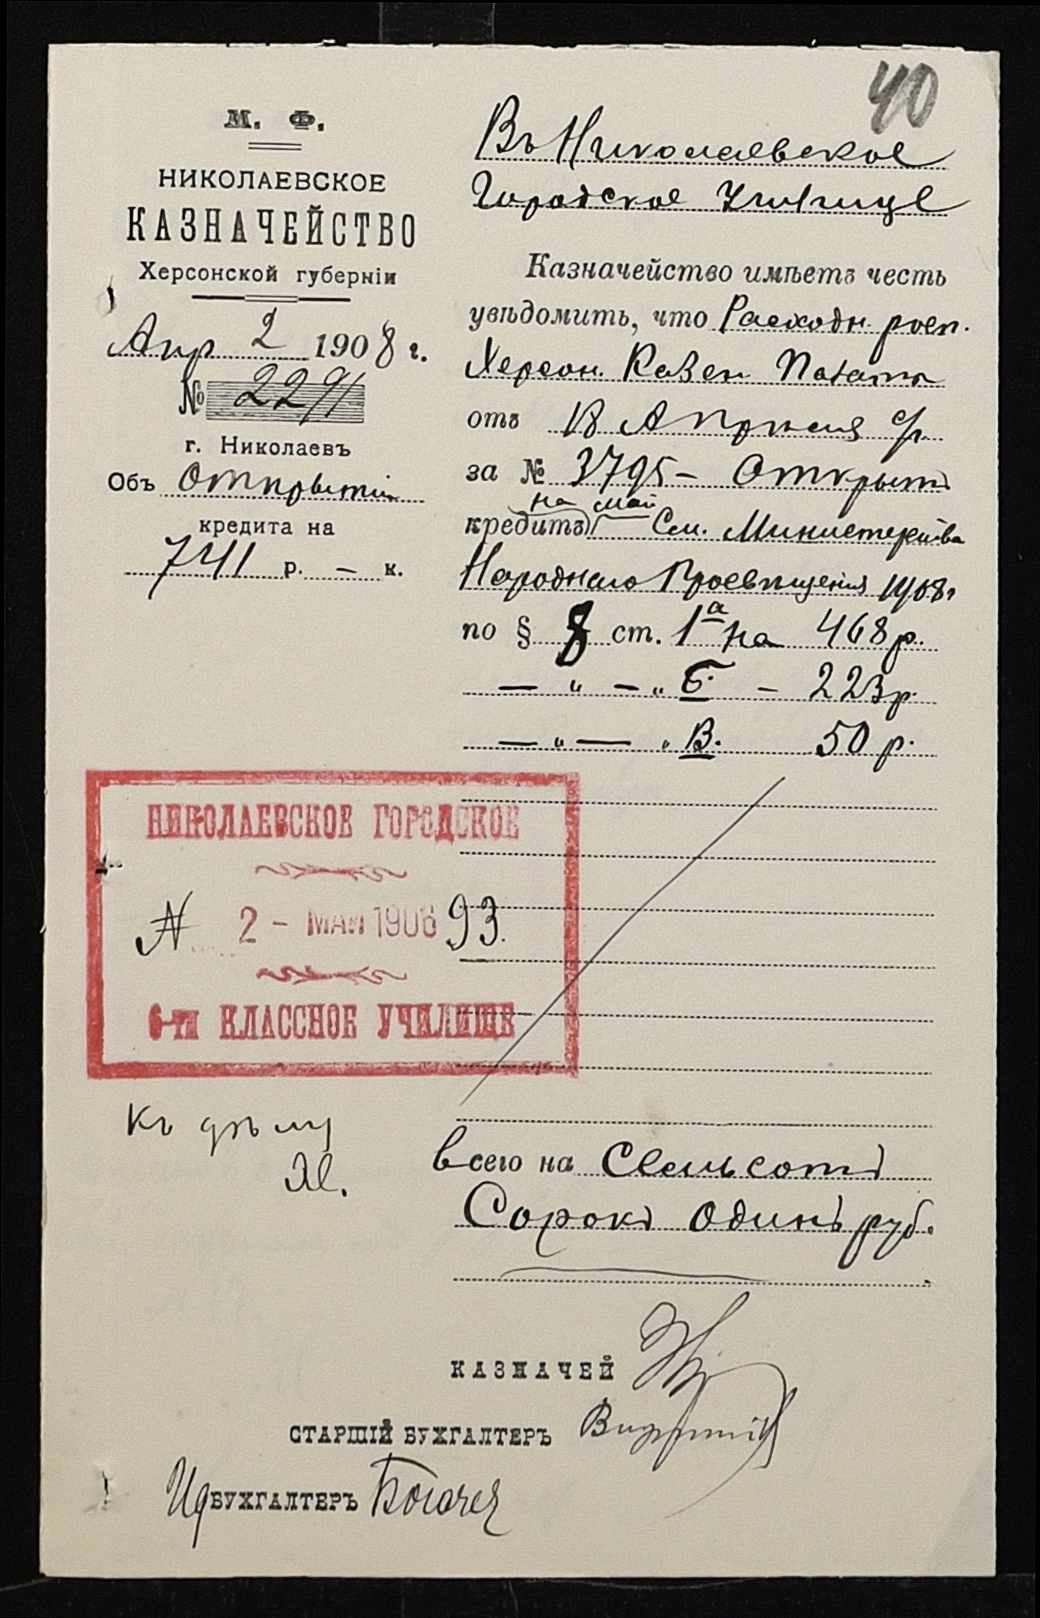 40
М. Ф.
НИКОЛАЕВСКОЕ
КАЗНАЧЕЙСТВО
Херсонской губерніи
Апр 2 1908 г.
№ 2291
г. Николаевъ
Объ открытіи
кредита на
741 р. – к.
Въ Николаевское
Городское Училище
Казначейство имѣетъ честь
увѣдомить, что Расходн. росп.
Херсон. Казен Палаты
отъ 18 Апрѣля с/г.
за № 3795 – Открытъ
на май
кредитъ См. Министерства
Народнаго Просвѣщенія 1908 г
по § 8 ст. 1 а на 468 р.
— " — " б. – 223 р.
— " — " В. 50 р.
НИКОЛАЕВСКОЕ ГОРОДСКОЕ
№ 2 - МАЯ 1908 93.
6-ти КЛАССНОЕ УЧИЛИЩЕ
Къ дѣлу
всего на Семьсотъ
Сорокъ одинъ руб.
КАЗНАЧЕЙ
СТАРШІЙ БУХГАЛТЕРЪ
Ид БУХГАЛТЕРЪ